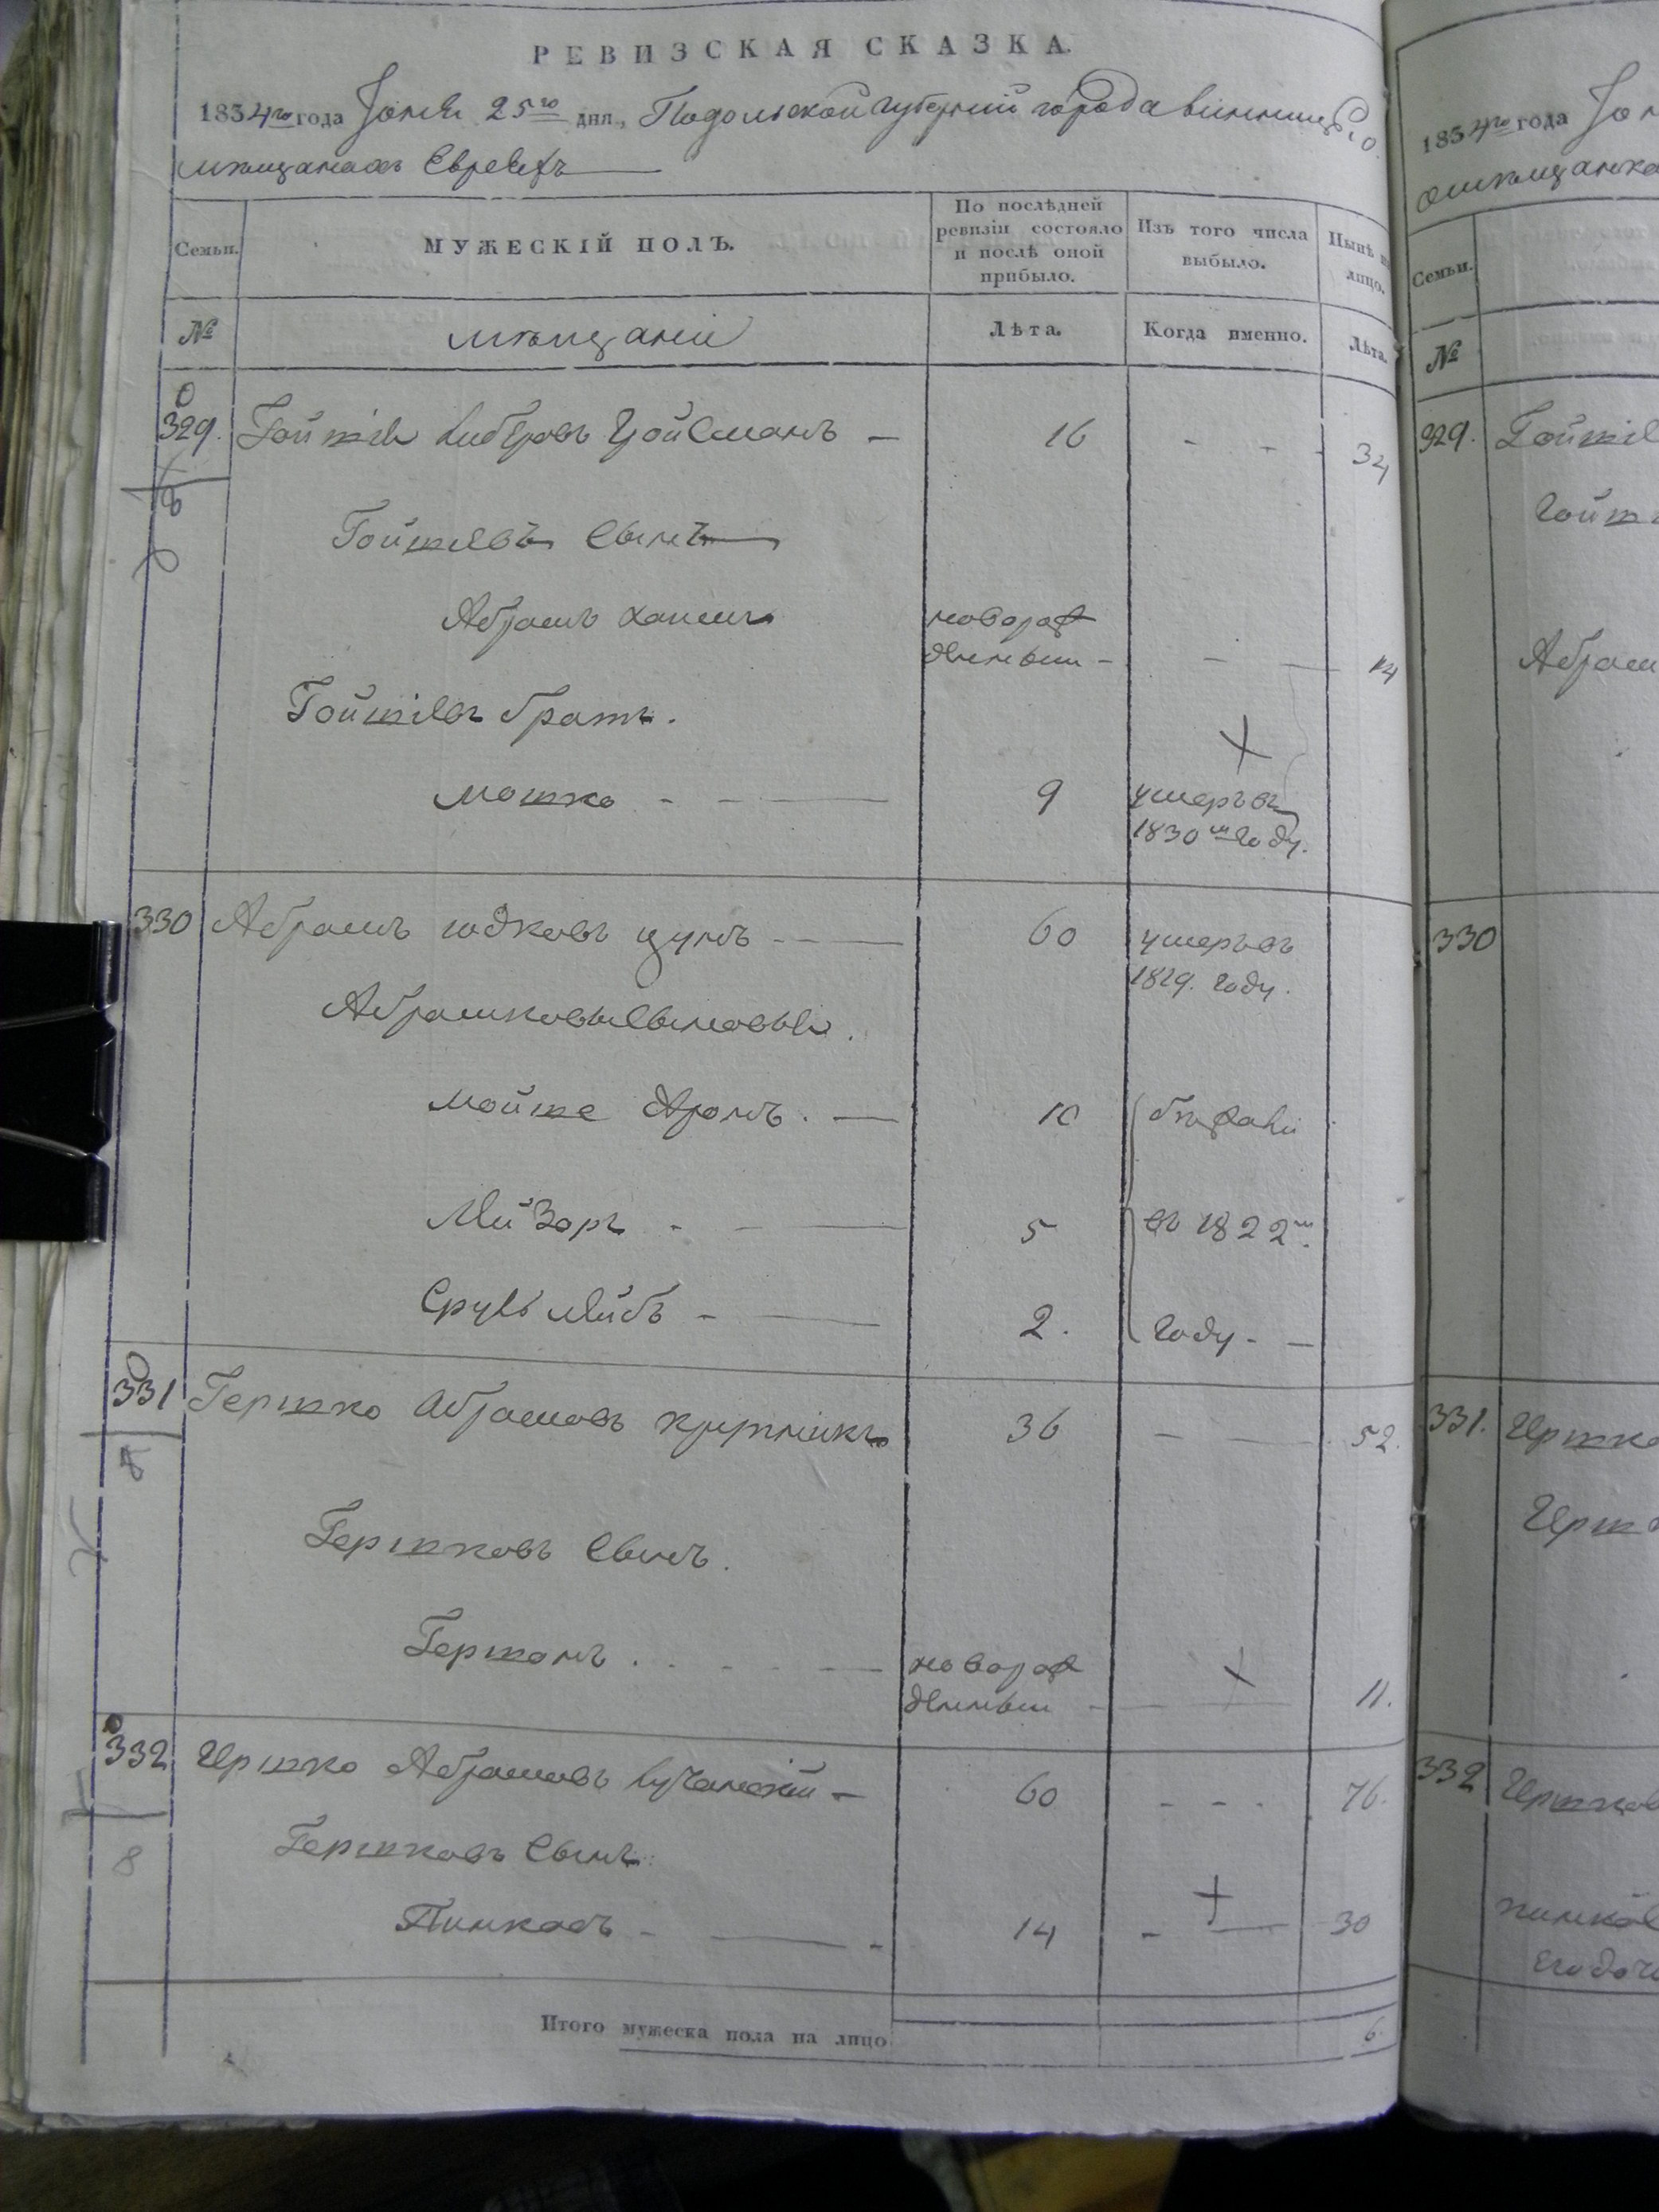 РЕВИЗСКАЯ СКАЗКА.
1834го года Іюня 25го дня, Подольской губерніи города винницы о
мѣщанахъ Евреяхъ
Семьи.
МУЖЕСКІЙ ПОЛЪ.
По послѣдней ревизіи состояло и послѣ оной прибыло.
Изъ того числа выбыло.
Нынѣ на лицо.
№
мѣщане
Лѣта.
Когда именно.
Лѣта.
329. Гойшія Цойсманъ — 16 - - - 34
8
Гойшіевъ Сынъ
Абрамъ Хаимъ новорож
денный - — — 14
Гойшіевъ братъ.
Мошко - - — 9 умеръ въ
1830м году.
330 Абрамъ Юдковъ цунъ - — 60 умеръ въ
1819. году.
Абрамковы Сыновья.
Мойше Аронъ. — 10 бѣжали
Лейзоръ - - — 5 въ 1822м
Сруль Лейбъ - — 2. году - —
331 Гершко Абрамовъ 36 — — 52.
8
Гершковъ Сынъ.
Гершонъ . . - - — новорож
денный - — 11.
332 Гершко Абрамовъ Лучанскій — 60 - - - 76.
Гершковъ Сынъ
8
Пинкасъ - — - 14 - — 30
Итого мужеска пола на лицо 6.
1834го года
Семьи.
№
329.
Абрам
330
331. Гершко
332